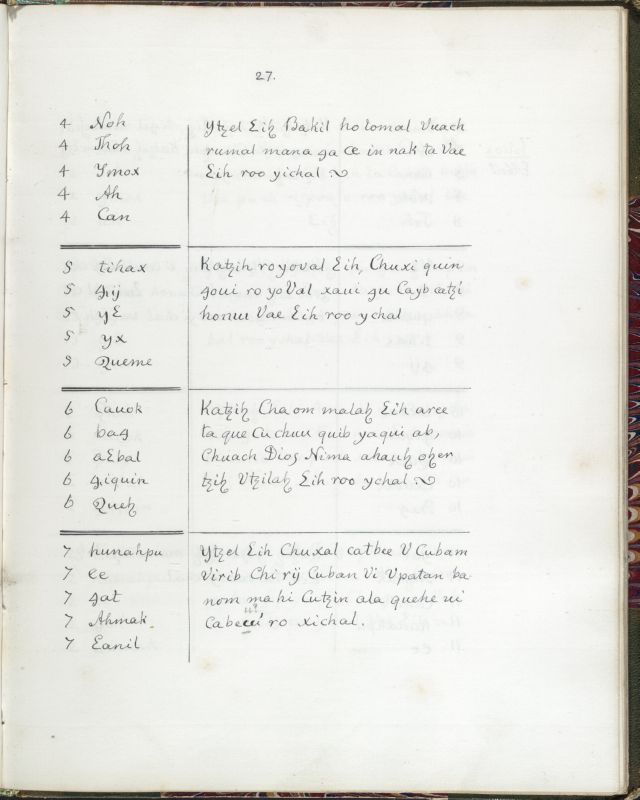 27.
4 Noh Ytzel Eih Bakil holomal Vuach
4 Thoh rumal mana ga Ce in nak ta Vae
4 Ymox Eih roo yichal
4 Ah
4 Can
5 tihax Katzih royoval Eih, Chuxi quin
5 gij goui ro yoVal xaui gu Cayb catzi
5 yE honuu Vae Eih roo ychal
5 yx
5 Queme
6 Cauok Katzih Chaom malah Eih aree
6 bag ta que Cu chuu quib yaqui ab,
6 aEbal Chuach Dios Nima ahauh oher
6 giquin tzih Vtzilah Eih roo ychal
6 Queh
7 hunahpu Ytzel Eih Chuxal catbee V Cubam
7 ee Virib Chi rij Cuban Vi Vpatan ba
7 gat nom mahi Cutzin ala quehe ui
7 Ahmak ro xichal.
7 Eanil